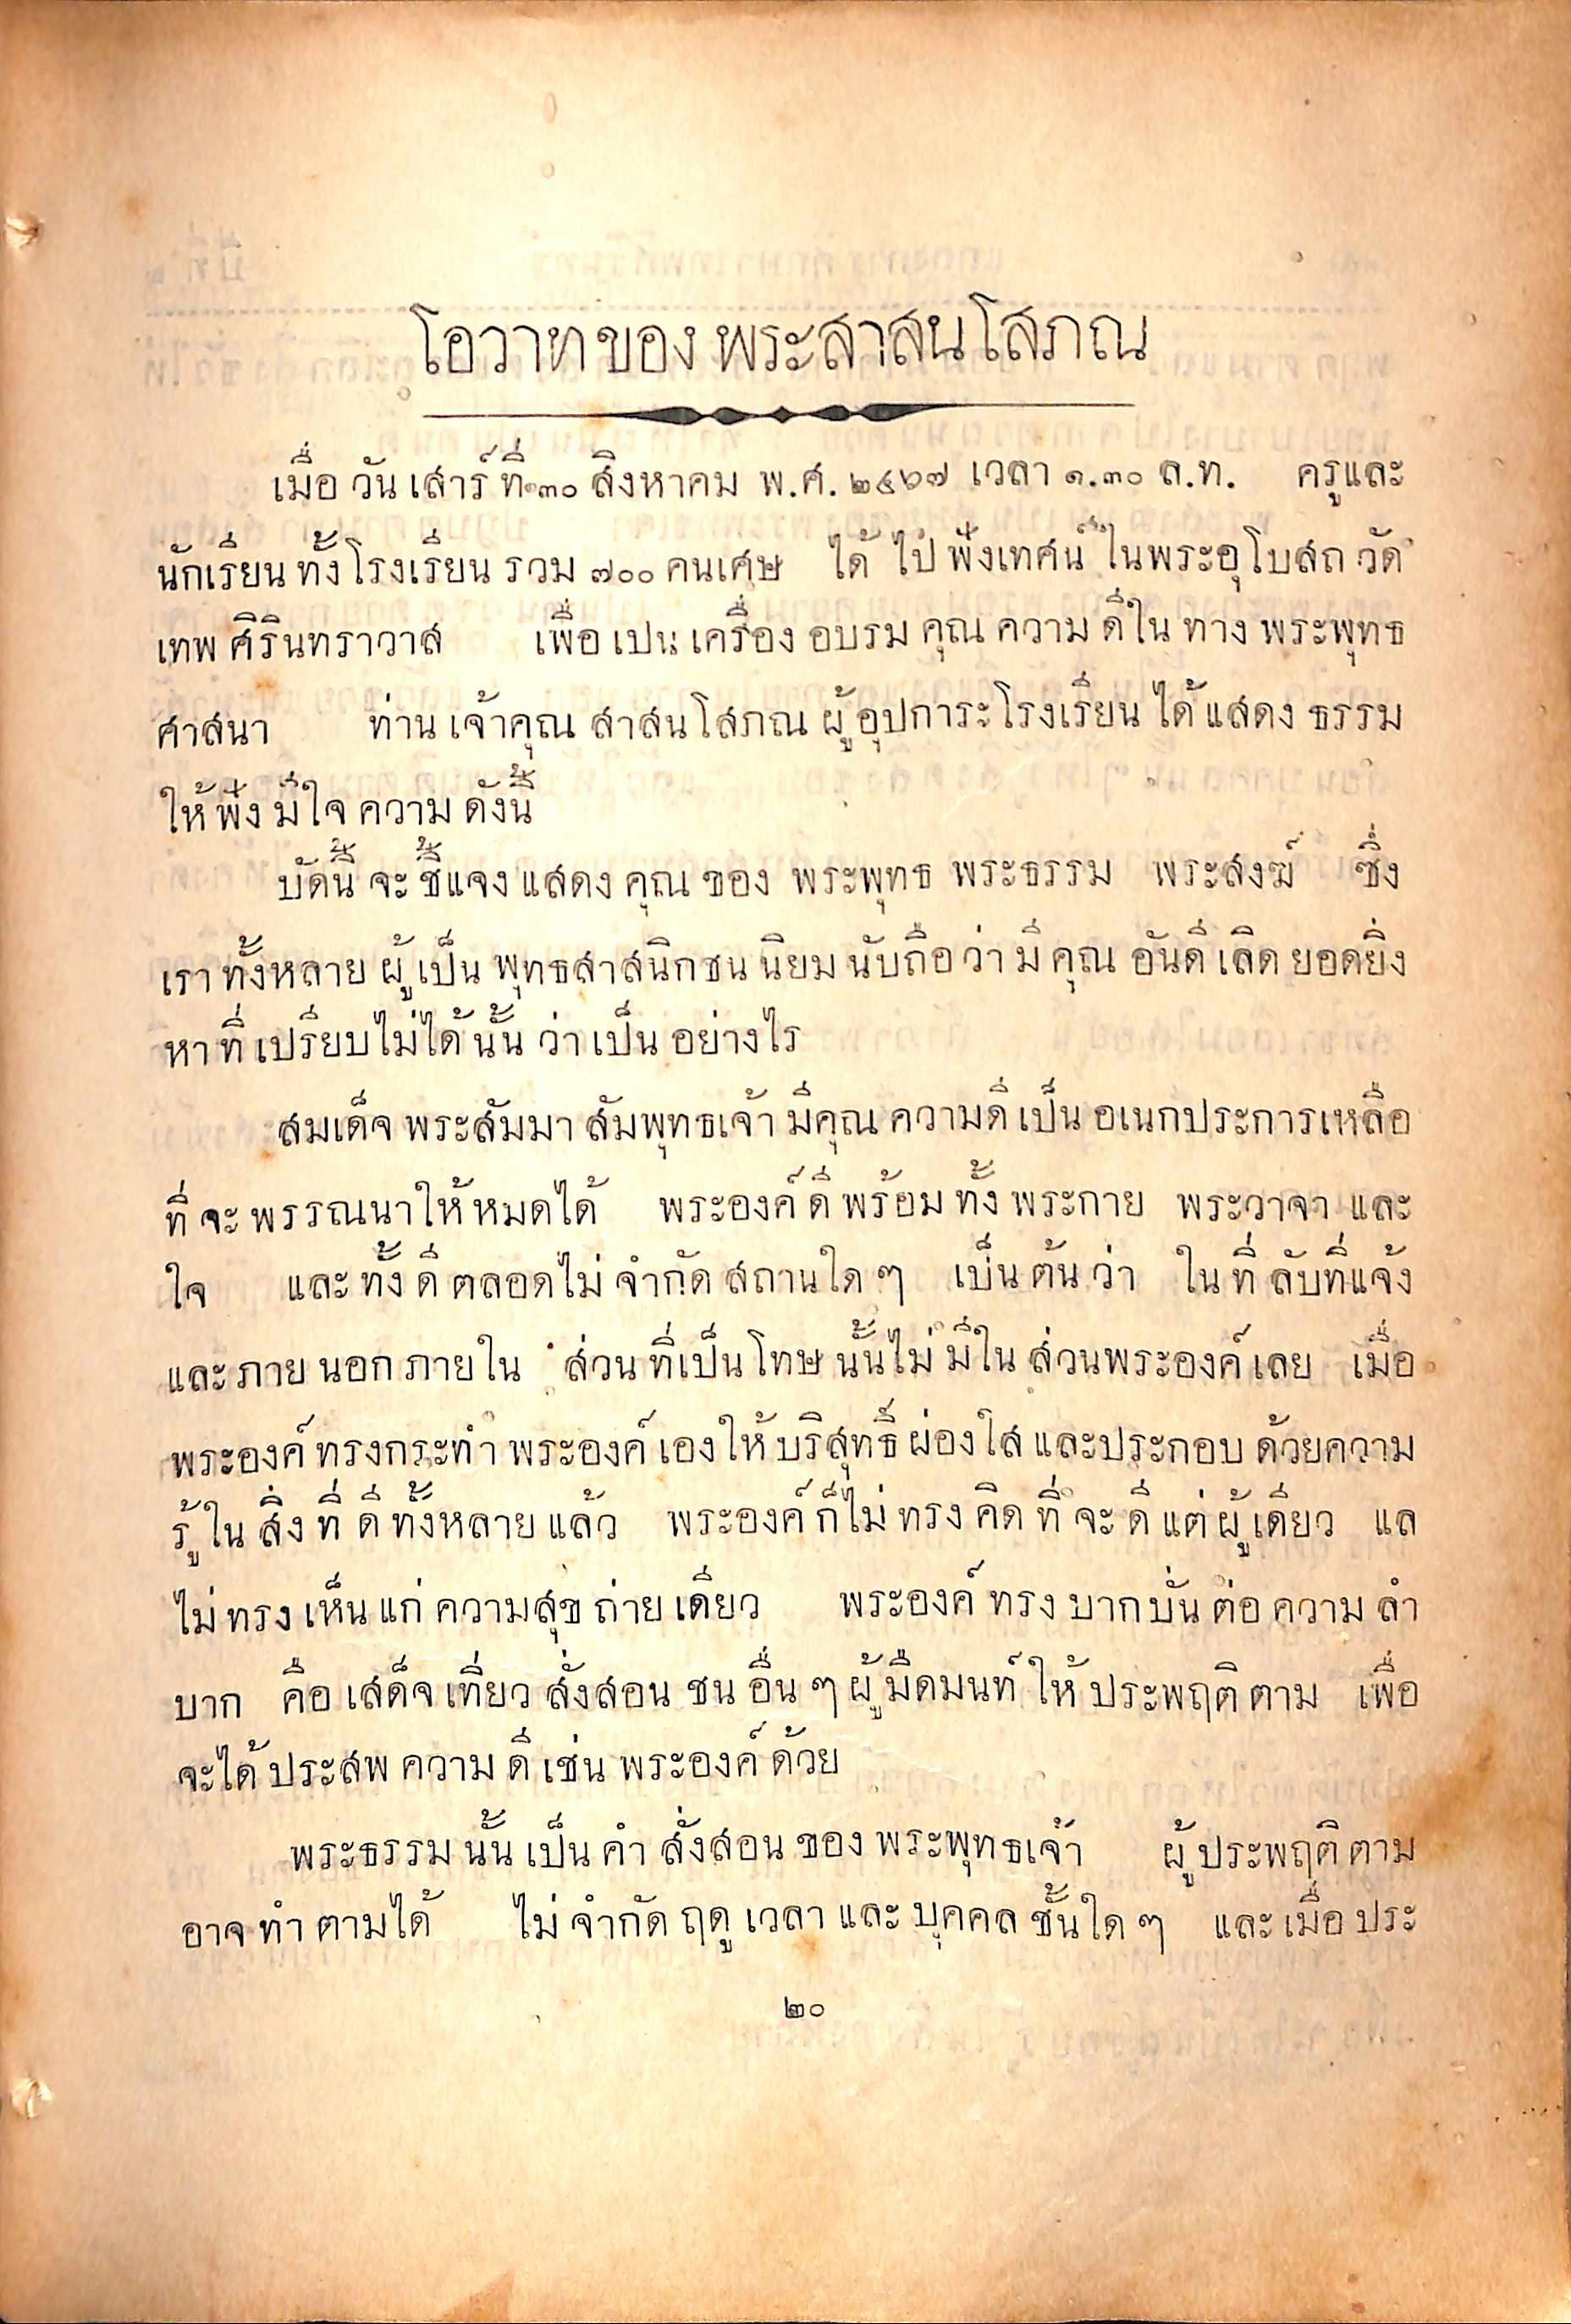 โอวาทของพระสาสนโสภณ
เมื่อวันเสาร์ที่ ๓๐ สิงหาคม พ.ศ. ๒๔๖๗ เวลา ๑.๓๐ ล.ท. ครูและ
นักเรียนทั้งโรงเรียนรวม ๗๐๐ คนเศษ ได้ไปฟังเทศน์ในพระอุโบสถวัด
เทพศิรินทราวาส เพื่อเปนเครื่องอบรมคุณความดีในทางพระพุทธ
ศาสนา ท่านเจ้าคุณสาสนโสภณผู้อุปการะโรงเรียนได้แสดงธรรม
ให้ฟังมีใจความดังนี้
บัดนี้จะชี้แจงแสดงคุณของ พระพุทธ พระธรรม พระสงฆ์ ซึ่ง
เราทั้งหลายผู้เป็นพุทธสาสนิกชนนิยมนับถือว่ามีคุณอันดีเลิดยอดยิ่ง
หาที่เปรียบไม่ได้นั้นว่าเป็นอย่างไร
สมเด็จพระสัมมาสัมพุทธเจ้ามีคุณความดีเป็นอเนกประการเหลือ
ที่จะพรรณนาให้หมดได้ พระองค์ดีพร้อมทั้งพระกาย พระวาจา และ
ใจ และทั้งดีตลอดไม่จำกัดสถานใด ๆ เป็นต้นว่า ในที่ลับที่แจ้ง
และภายนอกภายใน ส่วนที่เป็นโทษนั้นไม่มีในส่วนพระองค์เลย เมื่อ
พระองค์ทรงกระทำพระองค์เองให้บริสุทธิ์ผ่องใสและประกอบด้วยความ
รู้ในสิ่งที่ดีทั้งหลายแล้ว พระองค์ก็ไม่ทรงคิดที่จะดีแต่ผู้เดียว แล
ไม่ทรงเห็นแก่ความสุขถ่ายเดียว พระองค์ทรงบากบั่นต่อความลำ
บาก คือเสด็จเที่ยวสั่งสอนชนอื่น ๆ ผู้มืดมนท์ให้ประพฤติตาม เพื่อ
จะได้ประสพความดีเช่นพระองค์ด้วย
พระธรรมนั้นเป็นคำสั่งสอนของพระพุทธเจ้า ผู้ประพฤติตาม
อาจทำตามได้ ไม่จำกัดฤดูเวลาและบุคคลชั้นใด ๆ และเมื่อประ
๒๐